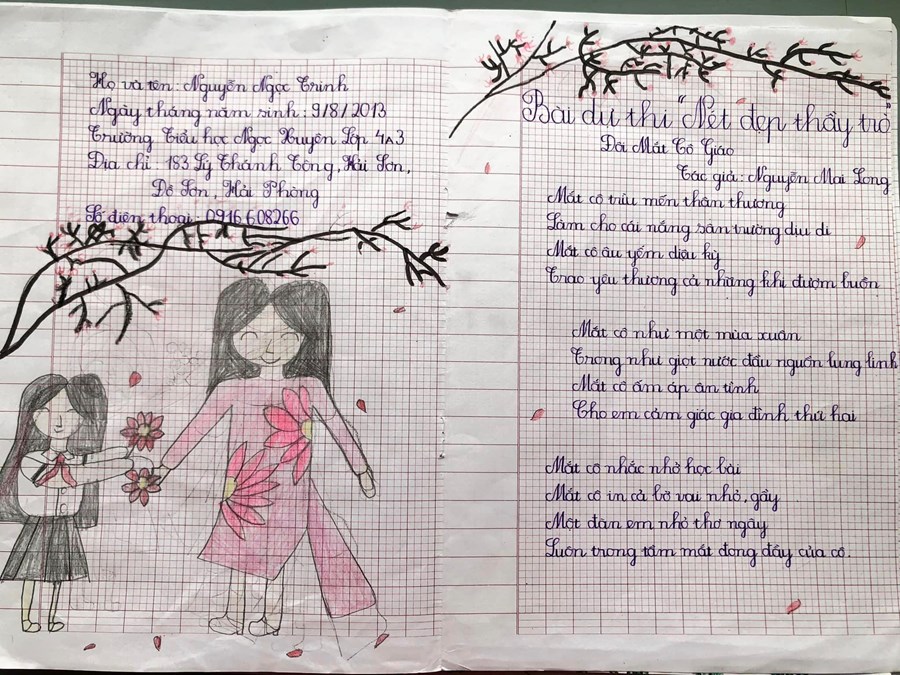 Họ và tên : Nguyễn Ngọc Trinh
Ngày tháng năm sinh : 9/8/2013
Trường Tiểu học Ngọc Xuyên Lớp 4A3
Địa chỉ : 183 Lý Thánh Tông, Hải Sơn,
Đồ Sơn, Hải Phòng
Số điện thoại : 0916 608266
Bài dự thi "Nét đẹp thầy trò"
Đôi Mắt Cô Giáo
Tác giả : Nguyễn Mai Long
Mắt cô trìu mến thân thương
Làm cho cái nắng sân trường dịu đi
Mắt cô âu yếm diệu kỳ
Trao yêu thương cả những khi đượm buồn
Mắt cô như một mùa xuân
Trong như giọt nước đầu nguồn lung linh
Mắt cô ấm áp ân tình
Cho em cảm giác gia đình thứ hai
Mắt cô nhắc nhở học bài
Mắt cô in cả bờ vai nhỏ, gầy
Một đàn em nhỏ thơ ngây
Luôn trong tầm mắt đong đầy của cô.